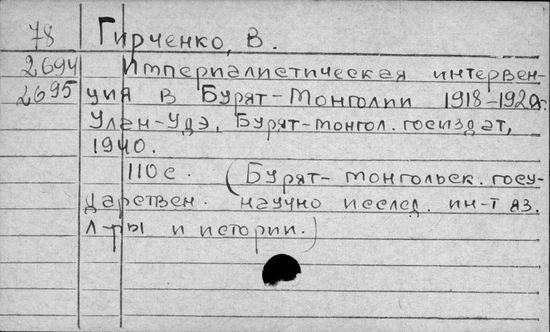 78 Гирченко, В.
2694 Империалистическая интервен-
2695 ция в Бурят-Монголии 1918-1920г.
Улан-Удэ, Бурят-монгол. госиздат,
1940.
110с. (Бурят-монгольск. госу-
дарствен. научно исслед. ин-т яз.
л-ры и истории.)